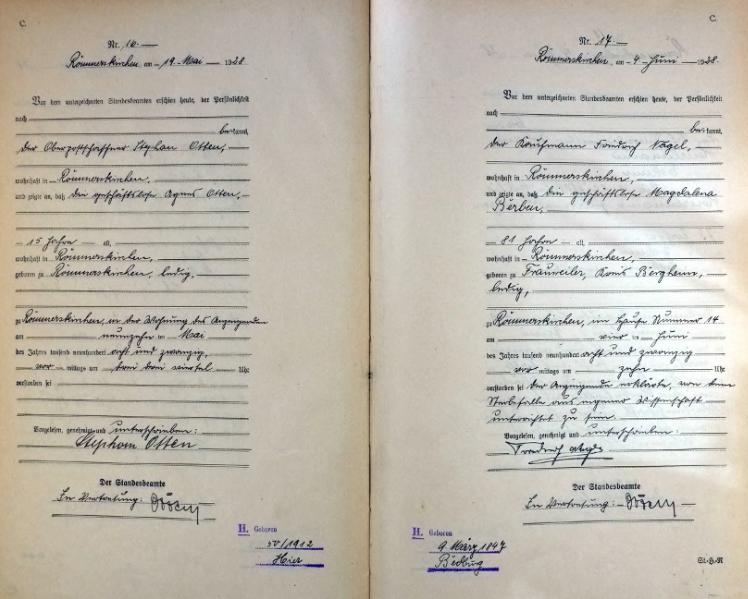 C.
Nr. 16.
Rommerskirchen, am 19. Mai 1928
Vor dem unterzeichneten Standesbeamten erschien heute, der Persönlichkeit
nach
bekannt,
der Oberpostschaffner Stephan Otten,
wohnhaft in Rommerskirchen,
und zeigte an, daß die geschäftslose Agnes Otten,
15 Jahre alt,
wohnhaft in Rommerskirchen,
geboren zu Rommerskirchen, ledig,
zu Rommerskirchen, in der Wohnung des Anzeigenden
am neunzehn ten Mai
des Jahres tausend neunhundert acht und zwanzig,
vor mittags um drei viertel Uhr
verstorben sei
Vorgelesen, genehmigt und unterschrieben:
Stephan Otten
Der Standesbeamte
In Vertretung:
H. Geboren
50/1912
Hier
C.
Nr. 17.
Rommerskirchen, am 4 Juni 1928.
Vor dem unterzeichneten Standesbeamten erschien heute, der Persönlichkeit
nach
bekannt,
der Kaufmann Friedrich Nagel,
wohnhaft in Rommerskirchen,
und zeigte an, daß die geschäftslose Magdalena
Berben,
81 Jahre alt,
wohnhaft in Rommerskirchen,
geboren zu Frauweiler, Kreis Bergheim,
ledig,
zu Rommerskirchen, im Hause Nummer 14
am vier ten Juni
des Jahres tausend neunhundert acht und zwanzig
vor mittags um zehn Uhr
verstorben sei Der Anzeigende erklärte, von dem
Sterbefalle aus eigener Wissenschaft
unterrichtet zu sein.
Vorgelesen, genehmigt und unterschrieben:
Der Standesbeamte
In Vertretung:
H. Geboren
9 März 1847
Bedburg
St-H-R